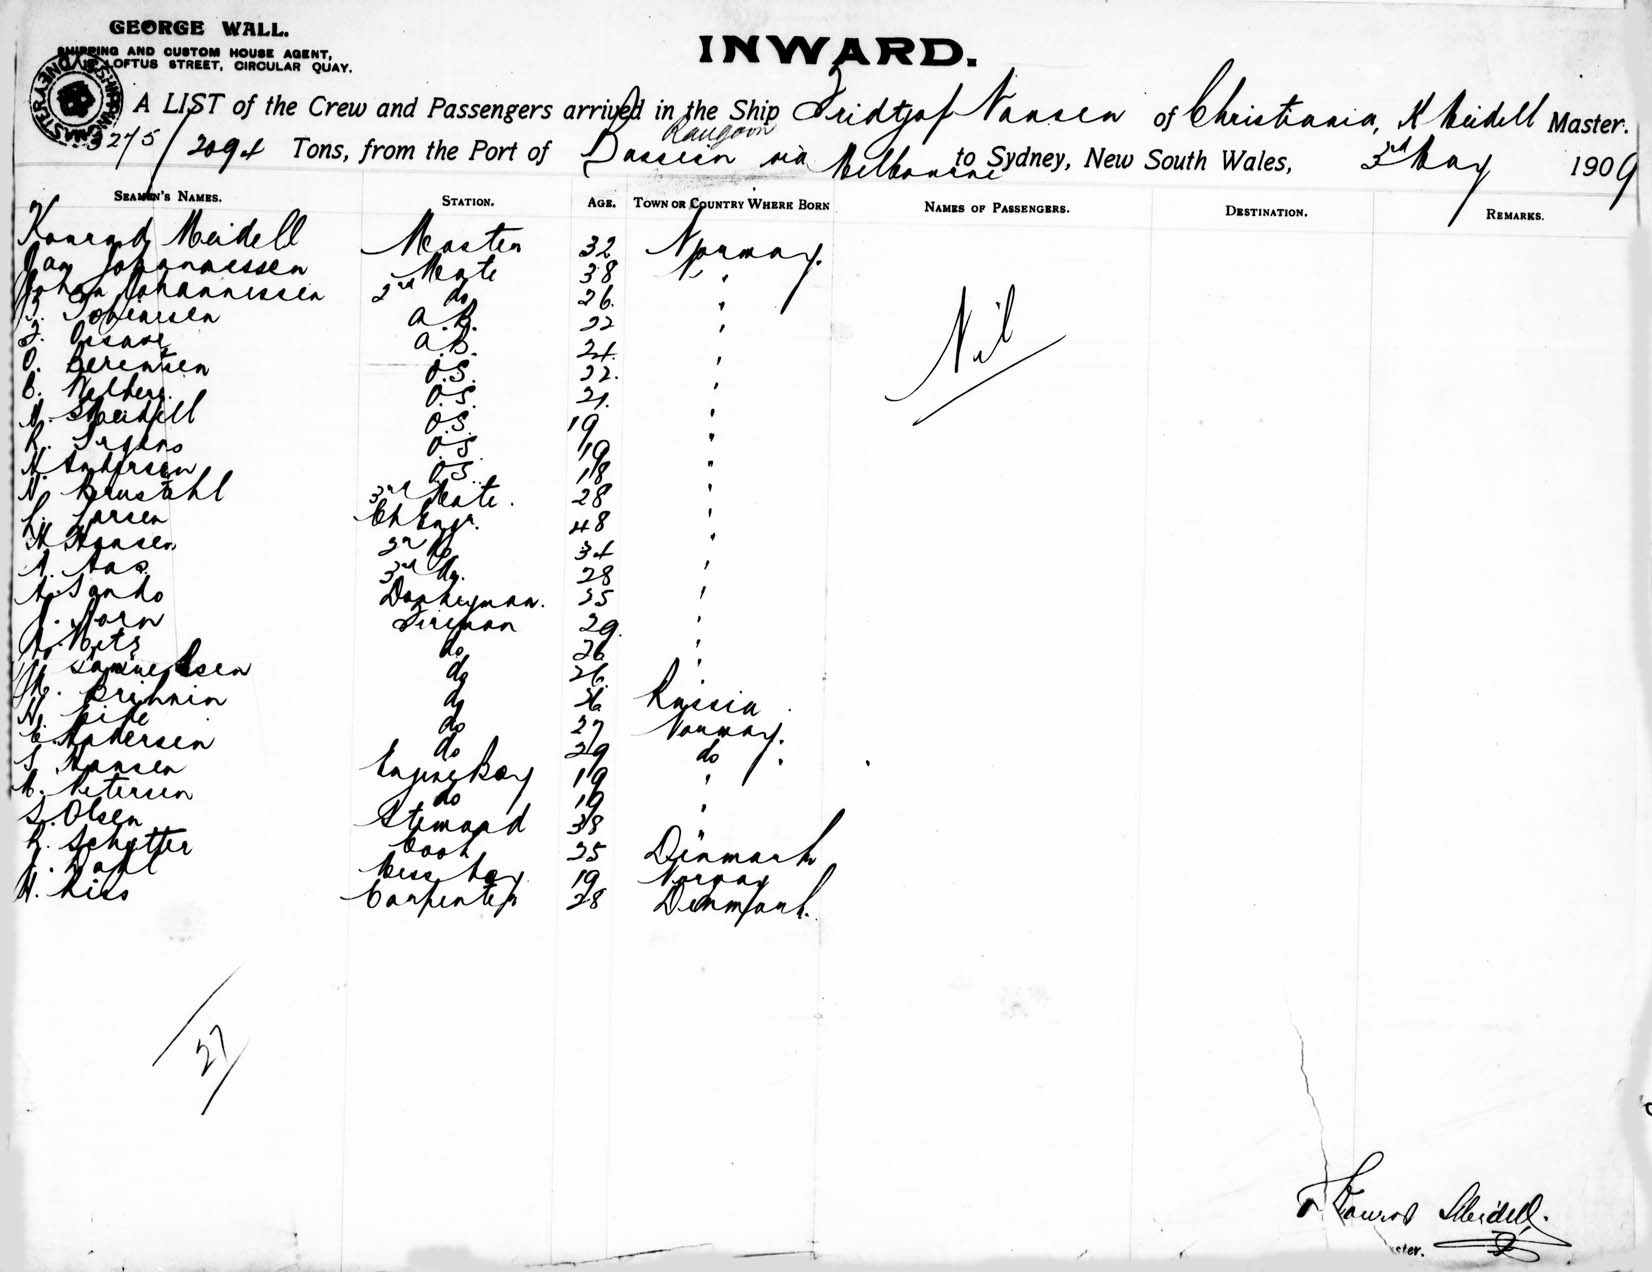 GEORGE WALL.
SHIPPING AND CUSTOM HOUSE AGENT,
LOFTUS STREET, CIRCULAR QUAY.
INWARD.
SHIPPING MASTER SYDNEY
A LIST of the Crew and Passengers arrived in the Ship Fridtjof Nansen of Christiania, K Meidell Master.
3275/2094 Tons, from the Port of Bassein Rangoon via Melbourne to Sydney, New South Wales, 3rd May 1909
SEAMEN'S NAMES. STATION. AGE. TOWN OR COUNTRY WHERE BORN NAMES OF PASSENGERS. DESTINATION. REMARKS.
Konrad Meidell Master 32 Norway. Nil
Jan Johannessen Mate 38 "
Johan Johannessen 2nd do 26. "
T. A.B. 22 "
A.B. 24. "
O. Berentsen O.S. 22. "
O.S. 21. "
Meidell O.S. 19 "
R. O.S. 19 "
N. Andersen O.S. 18 "
N. 3rd Mate. 28 "
L. Larsen Ch Engr. 48 "
H. Hansen 2nd do 34 "
A. Aas 3rd do. 28 "
A. Sando Donkeyman. 25 "
Fireman 29. "
do 26 "
Samuelsen do 26. "
do Russia
do 27 Norway.
E. Andersen do 29 do
S. Hansen Engine Boy 19 "
Petersen do 19 "
S. Olsen Steward 38 "
R. Schytter Cook 25 Denmark
J. Dahl Mess boy 19 Norway
H. Riis Carpenter 28 Denmark.
27
Konrad Meidell.